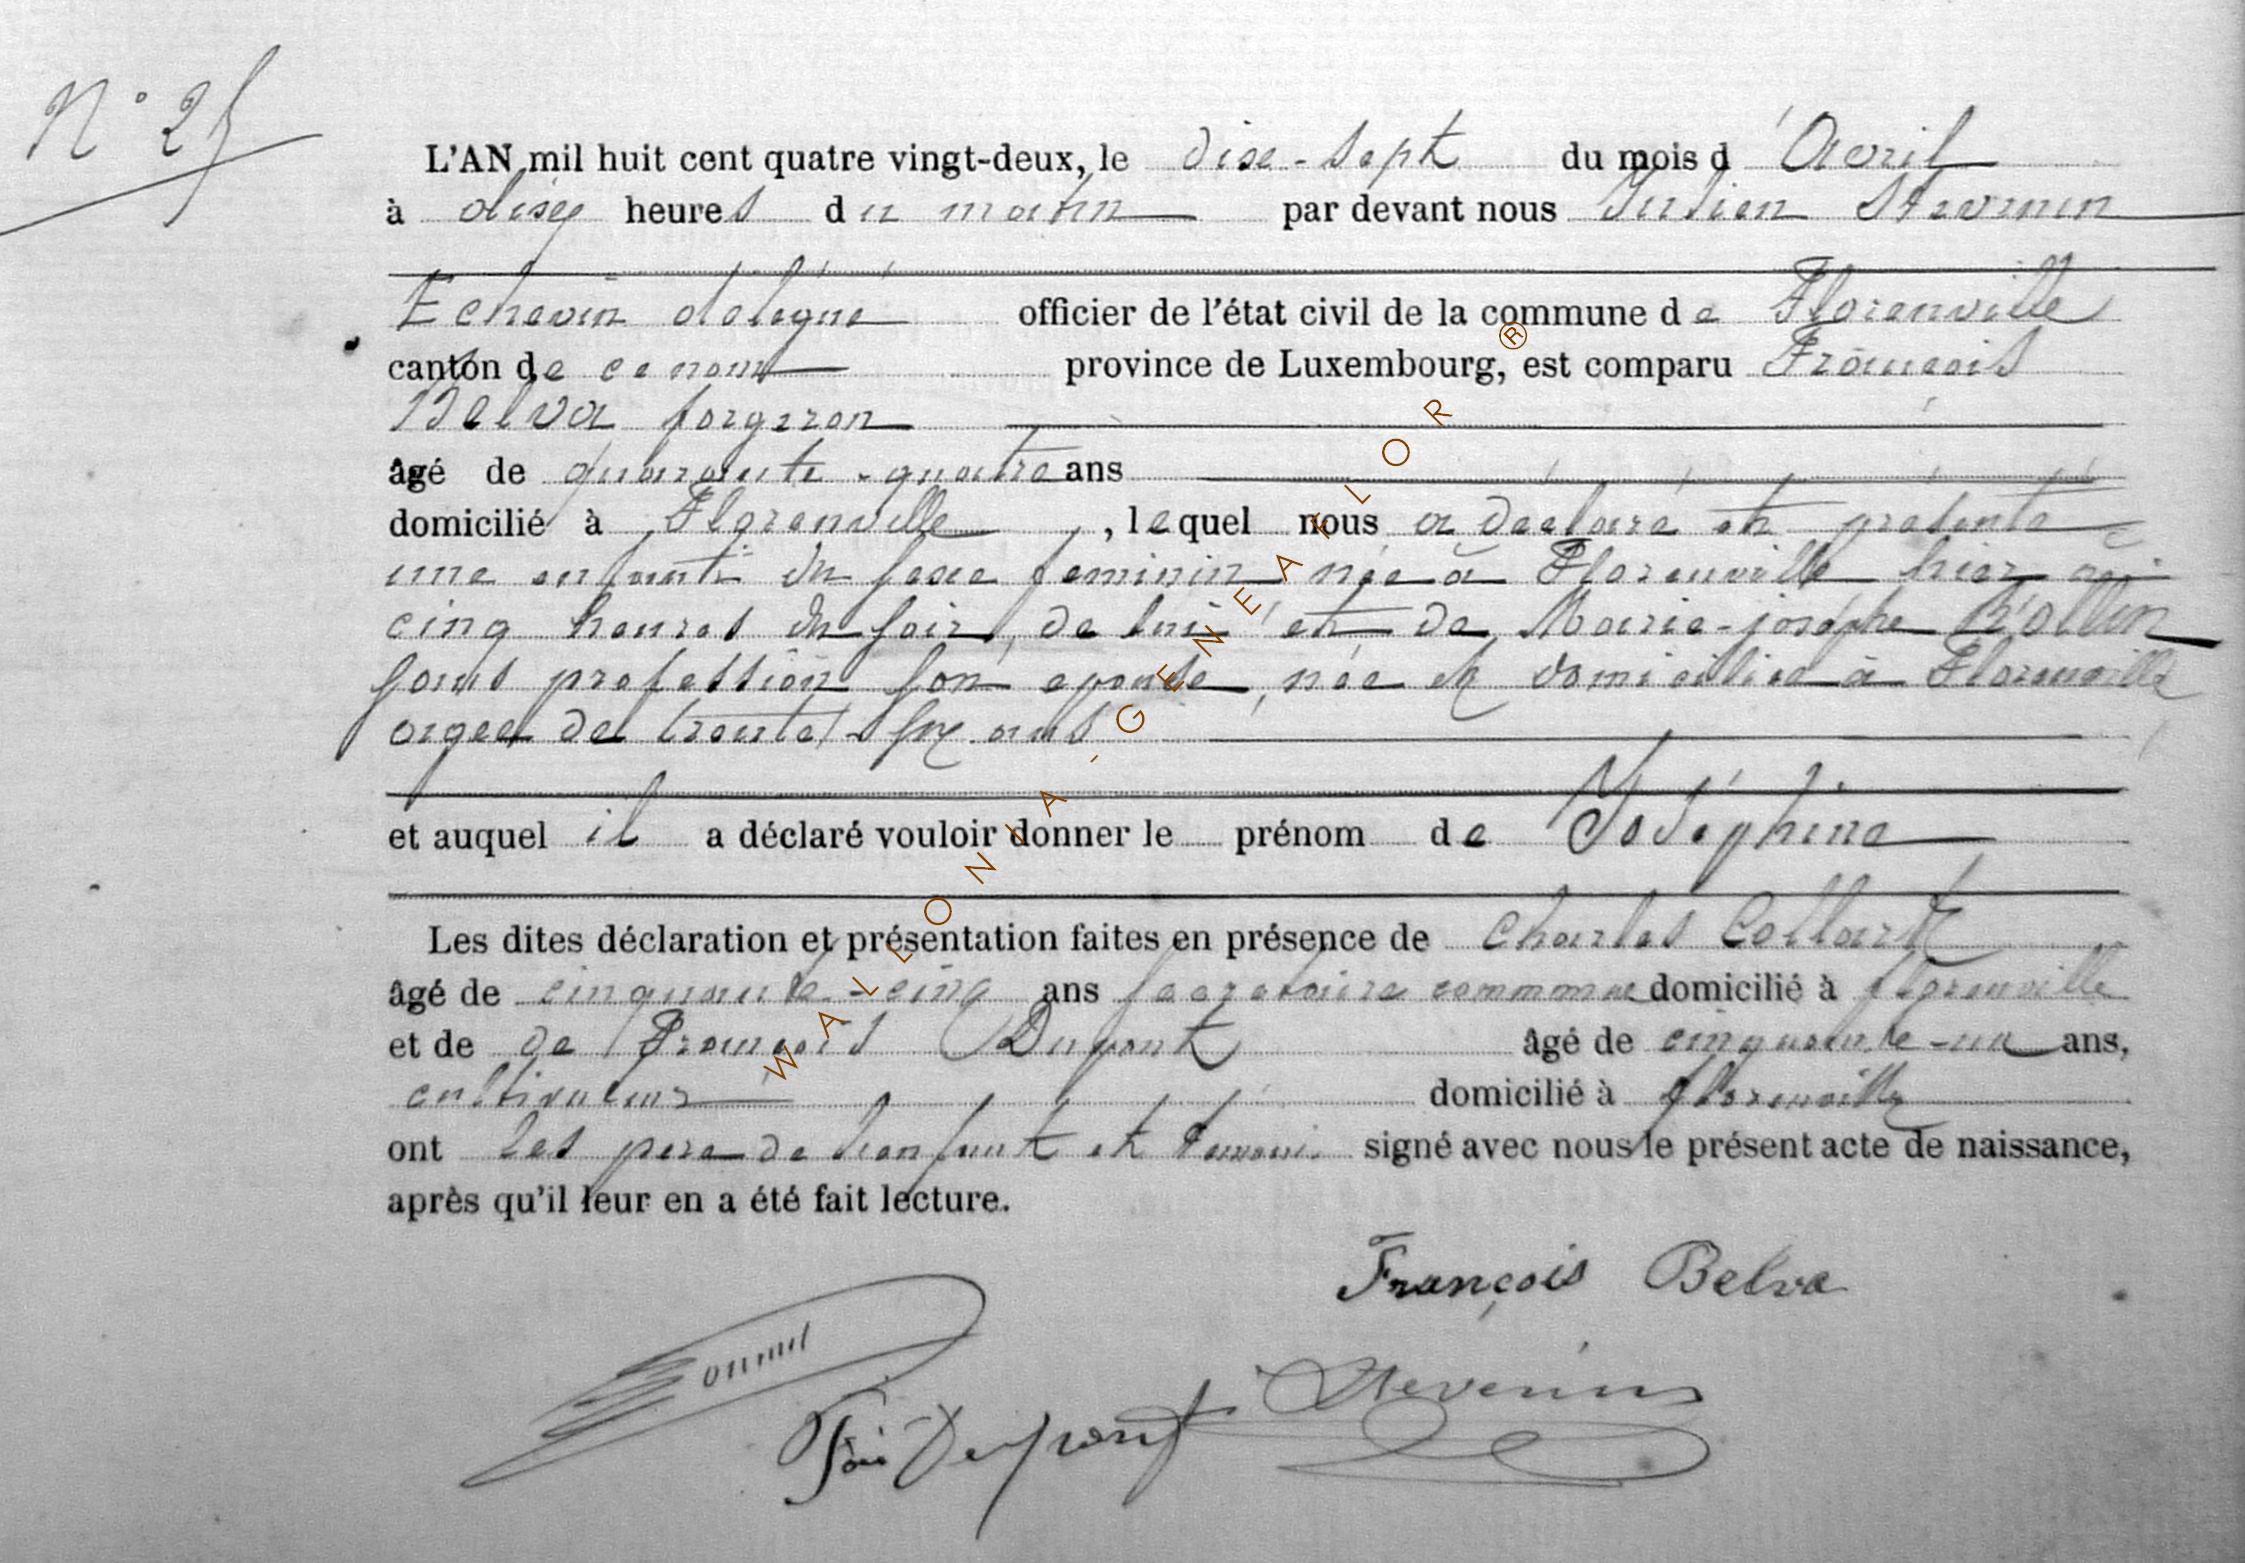 N° 25
L'AN mil huit cent quatre vingt-deux, le dise-sept du mois d'Avril
à disej heures du matin par devant nous Julien
Echevin delegué officier de l'état civil de la commune de Florenville
canton de ce nom province de Luxembourg, est comparu François
Belva forgeron
âgé de quarante-quatre ans
domicilié à Florenville, lequel nous a déclaré et présenté
une enfant du sexe feminin née à Florenville hier à
cinq heures du soir, de lui et de Marie-josephe Rollin
sans profession son epouse, née et domiciliée à Florenville
agee de trente-six ans
et auquel il a déclaré vouloir donner le prénom de Joséphine
Les dites déclaration et présentation faites en présence de Charles Collart
âgé de cinquante-cinq ans secretaire communal domicilié à florenville
et de de François Dupont âgé de cinquante-un ans,
cultivateur domicilié à florenville
ont les pere de l'enfant et temoins signé avec nous le présent acte de naissance,
après qu'il leur en a été fait lecture.
François Belva
Stevenin
Fçois Dupont
WALLONIA-GENEAFLOR®